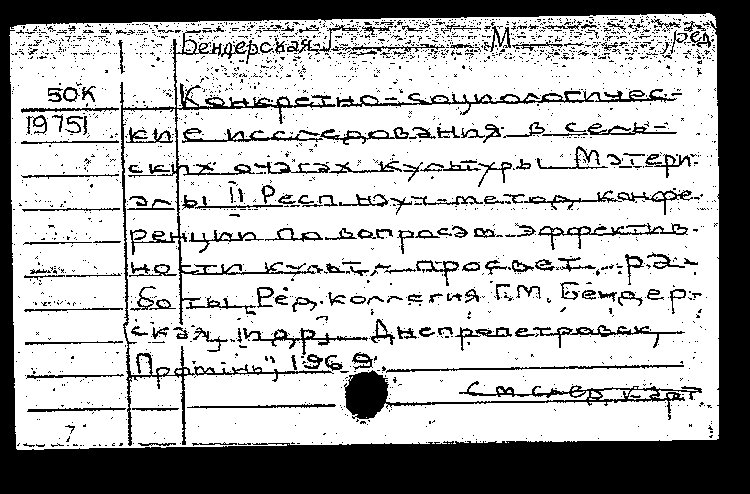 Бендерская Г М ,ред
50К Конкретно-социологичес-
19751 кие исследования в сель-
ских очагах культуры Матери-
алы II Респ. науч-метод. конфе-
ренции по вопросам эффектив-
ности культ.- просвет. ра-
боты. Ред. коллегия Г.М. Бендер-
ская, и др. Днепропетровск,
"Промiнь", 1969.
см след карт.
7